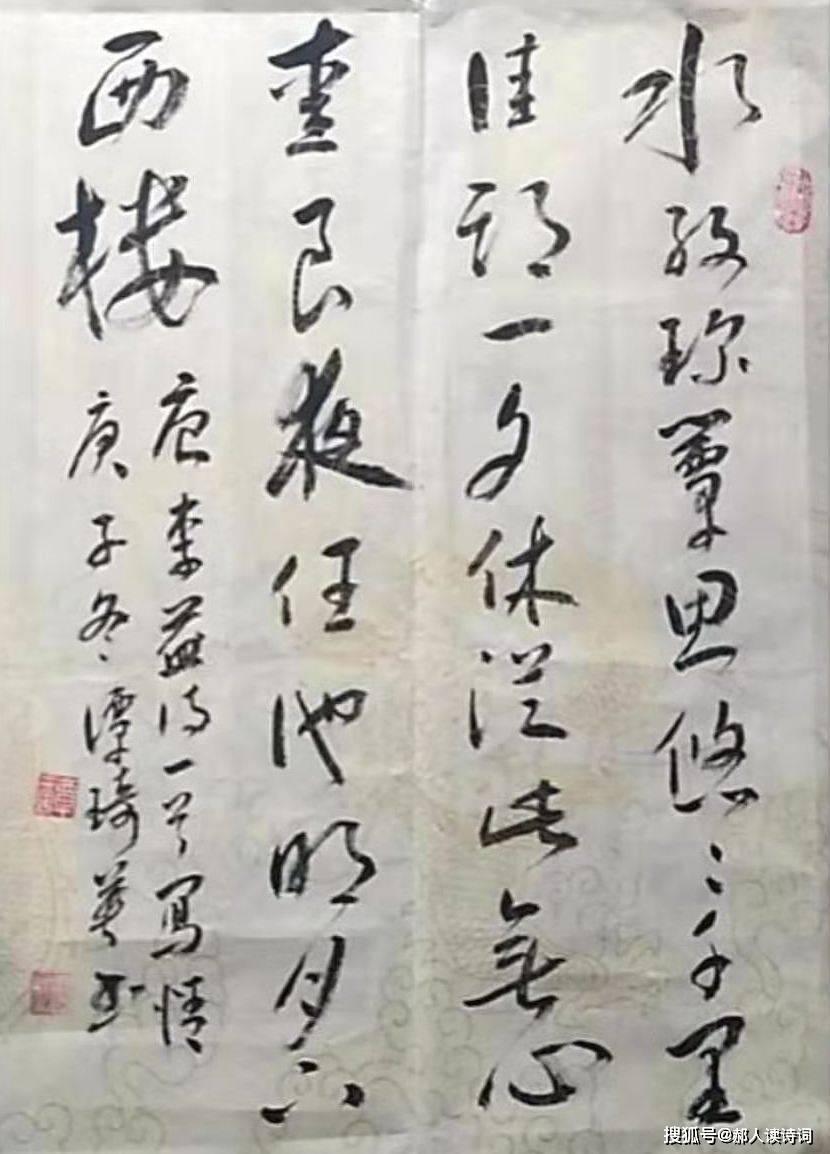 水纹珍簟思悠〻千里
佳期一夕休從此無心
愛良夜任他明月下
西楼
唐李益诗一首寫情
庚子冬谭琦英书
搜狐号@郝人读诗词